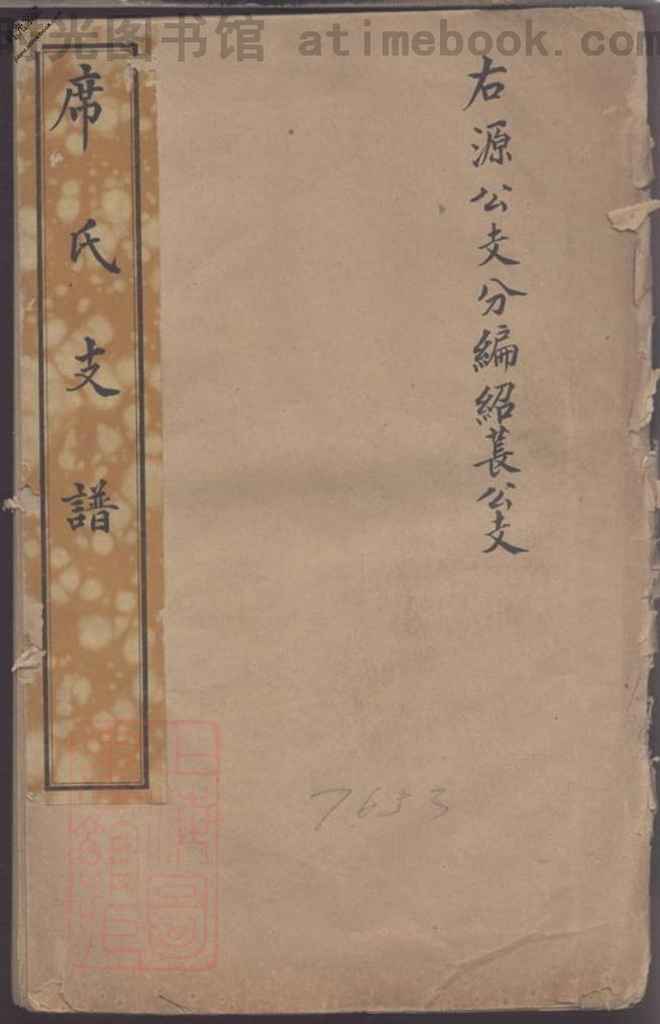 光图书馆 atimebook.com
右源公支分編紹萇公支
席氏支譜
7653